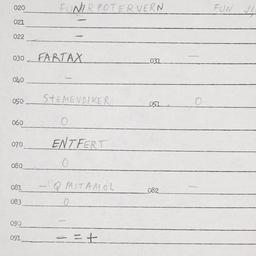 020 FUNIRPOTERVERN FUN
021 –
022 –
030 FARTAX 031 –
040 –
050 STEMEVDIKER 051 O
060 O
070 ENTFERT
080 O
081 – Q MITAMOL 082 –
083 O
090 –
091 – = +